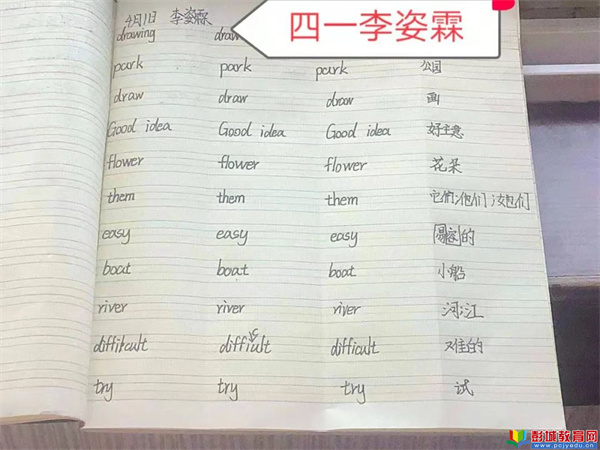 四一李姿霖
4月1日 李姿霖
drawing draw
park park park 公园
draw draw draw 画
Good idea Good idea Good idea 好主意
flower flower flower 花朵
them them them 它们/他们/她们
easy easy easy 容易的
boat boat boat 小船
river river river 河;江
difficult difficult difficult 难的
try try try 试
彭城教育网
www.pcjyedu.cn